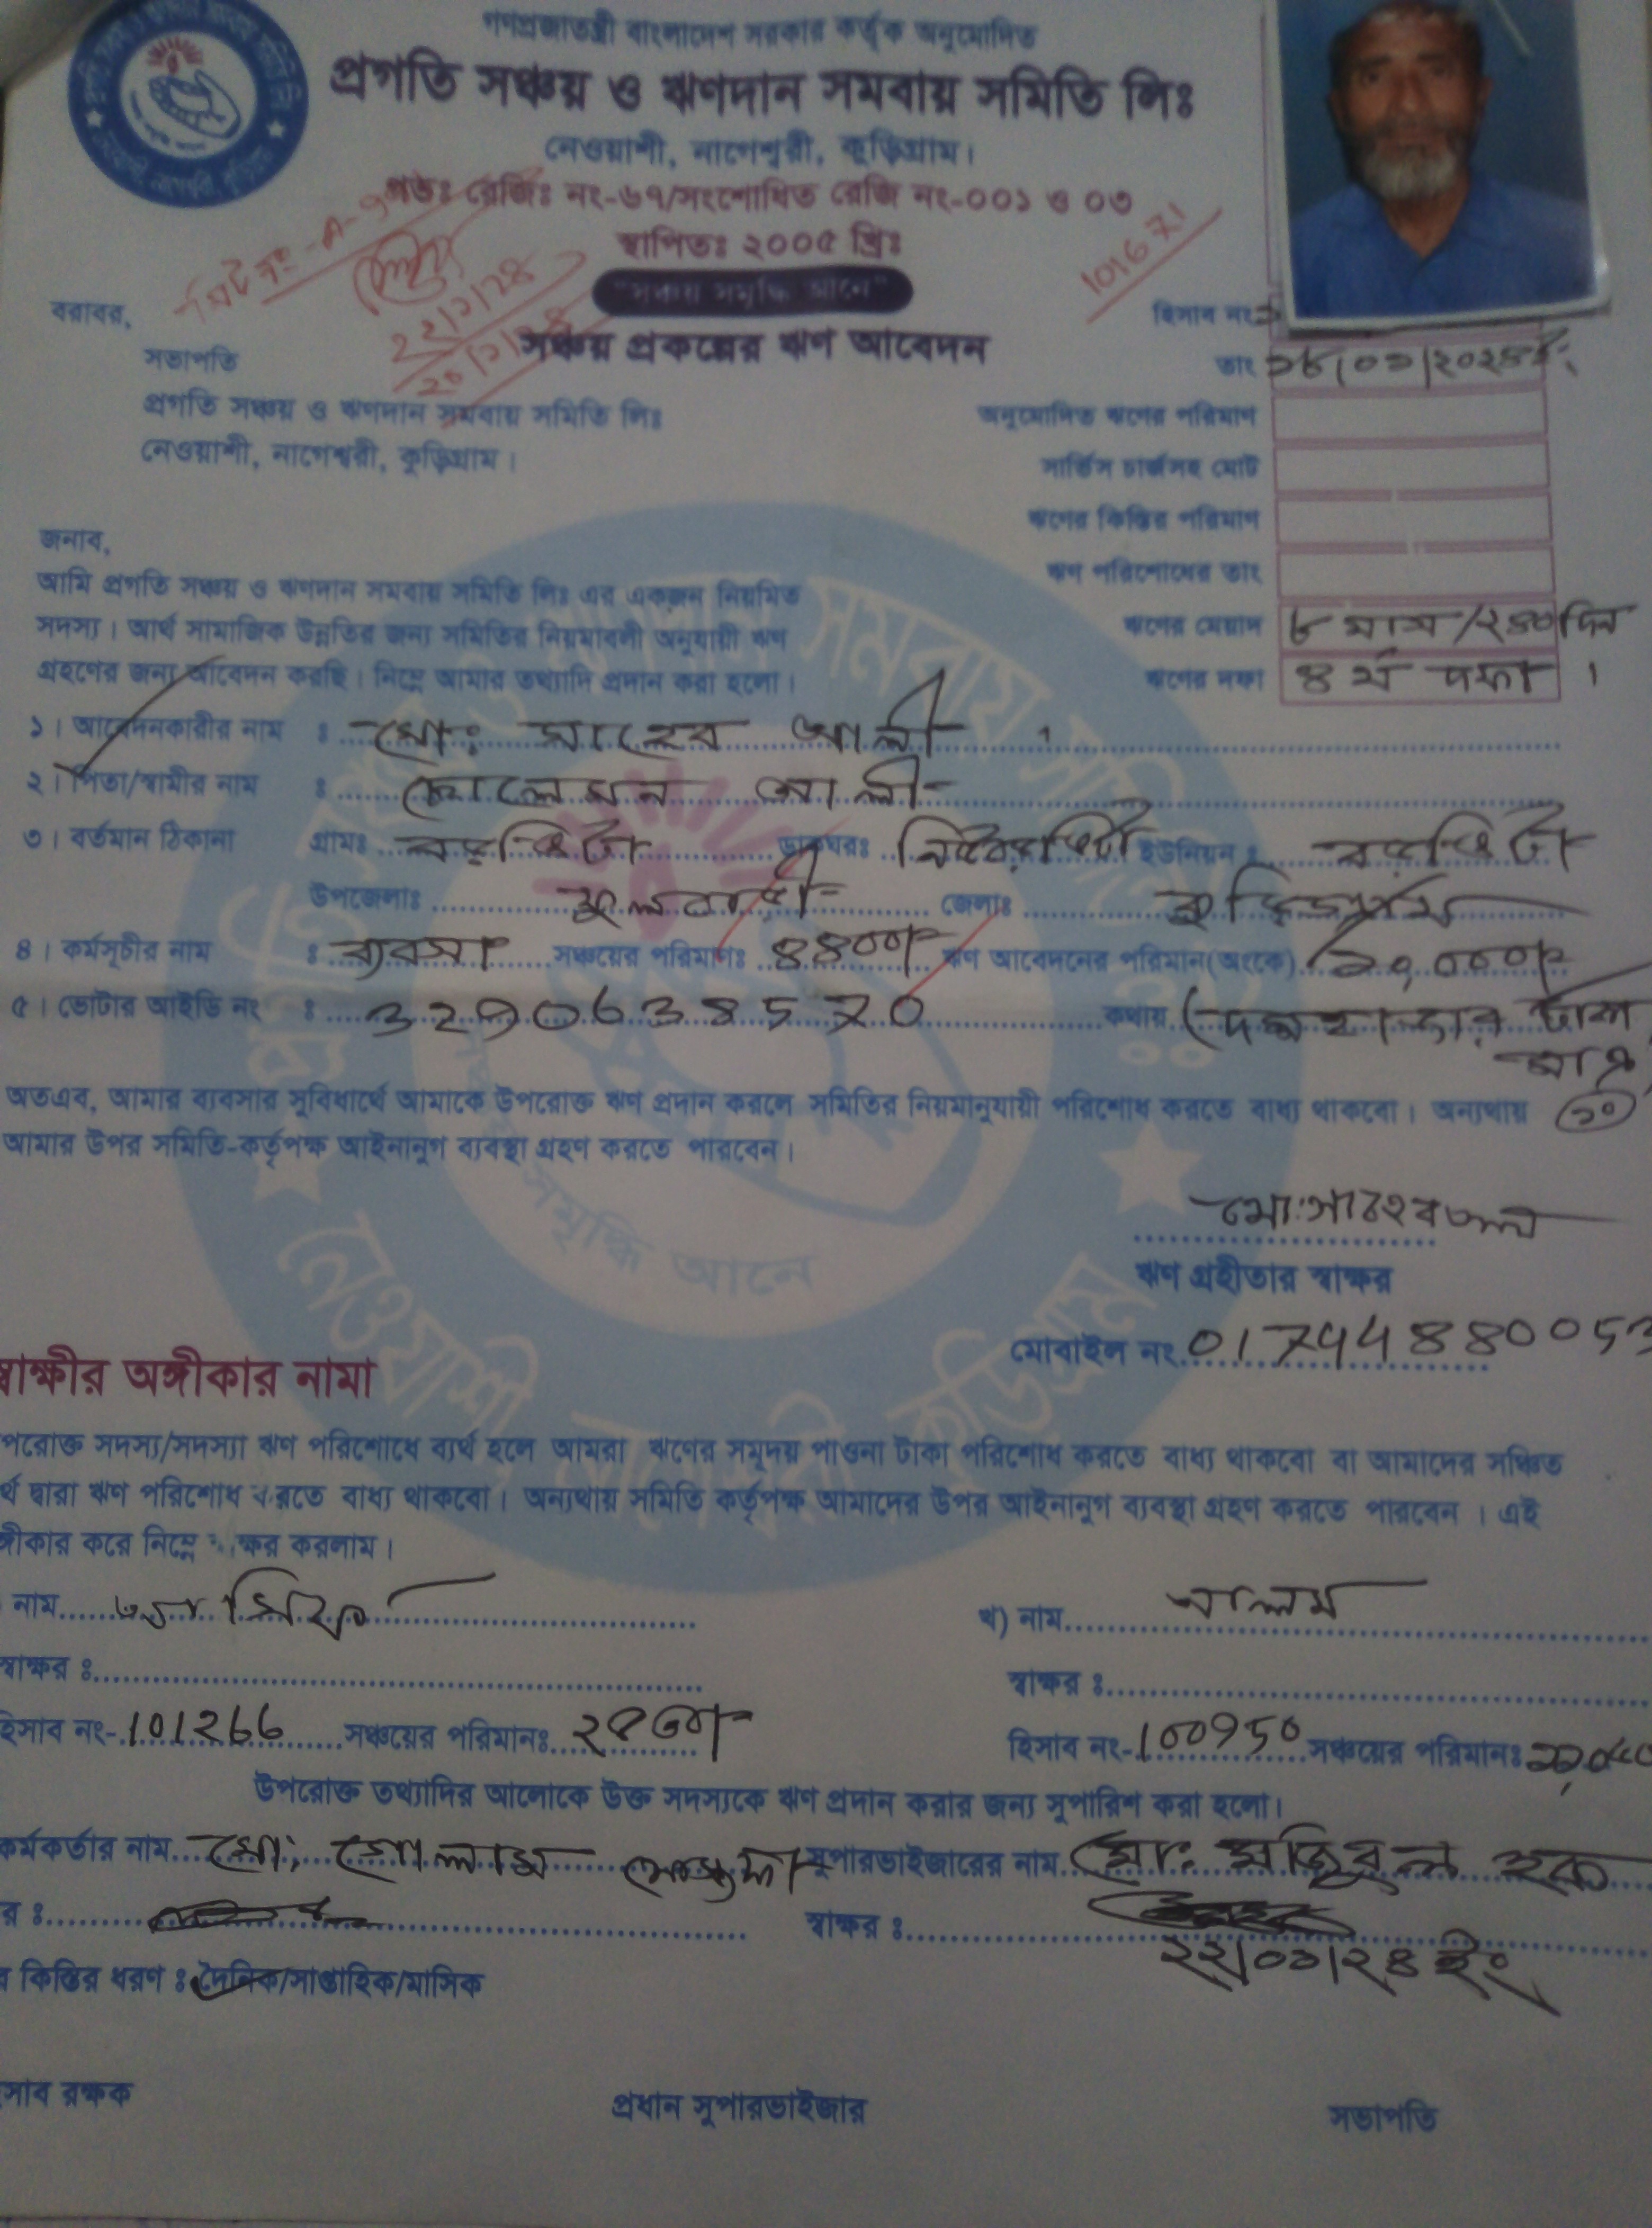 গণপ্রজাতন্ত্রী বাংলাদেশ সরকার কর্তৃক অনুমোদিত
প্রগতি সঞ্চয় ও ঋণদান সমবায় সমিতি লিঃ
নেওয়াশী, নাগেশ্বরী, কুড়িগ্রাম।
গভঃ রেজিঃ নং-৬৭/সংশোধিত রেজি নং-০০১ ও ০৩
স্থাপিতঃ ২০০৫ খ্রিঃ
"সঞ্চয় সমৃদ্ধি আনে"
101671
সঞ্চয় প্রকল্পের ঋণ আবেদন
হিসাব নং
তাং ১৮/০১/২০২৪ইং
বরাবর,
সভাপতি
প্রগতি সঞ্চয় ও ঋণদান সমবায় সমিতি লিঃ
নেওয়াশী, নাগেশ্বরী, কুড়িগ্রাম।
অনুমোদিত ঋণের পরিমাণ
সার্ভিস চার্জসহ মোট
ঋণের কিস্তির পরিমাণ
ঋণ পরিশোধের তাং
ঋণের মেয়াদ ৮ মাস/২৪০দিন
ঋণের দফা ৪র্থ দফা।
জনাব,
আমি প্রগতি সঞ্চয় ও ঋণদান সমবায় সমিতি লিঃ এর একজন নিয়মিত
সদস্য। আর্থ সামাজিক উন্নতির জন্য সমিতির নিয়মাবলী অনুযায়ী ঋণ
গ্রহণের জন্য আবেদন করছি। নিম্নে আমার তথ্যাদি প্রদান করা হলো।
১। আবেদনকারীর নাম : মোঃ সাহেব আলী
২। পিতা/স্বামীর নাম : ছোলেমন আলী
৩। বর্তমান ঠিকানা গ্রামঃ বড়ভিটা ডাকঘরঃ ইউনিয়ন : বড়ভিটা
উপজেলাঃ ফুলবাড়ী জেলাঃ কুড়িগ্রাম
৪। কর্মসূচীর নাম : ব্যবসা সঞ্চয়ের পরিমাণঃ ৪৪০০/= ঋণ আবেদনের পরিমান(অংকে) ১০,০০০/=
৫। ভোটার আইডি নং : 3290638570 কথায় (দশহাজার টাকা
মাত্র)
অতএব, আমার ব্যবসার সুবিধার্থে আমাকে উপরোক্ত ঋণ প্রদান করলে সমিতির নিয়মানুযায়ী পরিশোধ করতে বাধ্য থাকবো। অন্যথায়
আমার উপর সমিতি-কর্তৃপক্ষ আইনানুগ ব্যবস্থা গ্রহণ করতে পারবেন।
মোঃ সাহেব আলী
ঋণ গ্রহীতার স্বাক্ষর
মোবাইল নং
স্বাক্ষীর অঙ্গীকার নামা
পরোক্ত সদস্য/সদস্যা ঋণ পরিশোধে ব্যর্থ হলে আমরা ঋণের সমূদয় পাওনা টাকা পরিশোধ করতে বাধ্য থাকবো বা আমাদের সঞ্চিত
র্থ দ্বারা ঋণ পরিশোধ করতে বাধ্য থাকবো। অন্যথায় সমিতি কর্তৃপক্ষ আমাদের উপর আইনানুগ ব্যবস্থা গ্রহণ করতে পারবেন। এই
ঙ্গীকার করে নিম্নে স্বাক্ষর করলাম।
নাম খ) নাম আলম
স্বাক্ষর : স্বাক্ষর :
হিসাব নং-101266 সঞ্চয়ের পরিমানঃ হিসাব নং-100950 সঞ্চয়ের পরিমানঃ
উপরোক্ত তথ্যাদির আলোকে উক্ত সদস্যকে ঋণ প্রদান করার জন্য সুপারিশ করা হলো।
কর্মকর্তার নাম মোঃ গোলাম মোস্তফা সুপারভাইজারের নাম মোঃ মজিবুল হক
র : স্বাক্ষর :
২২/০১/২৪ইং
র কিস্তির ধরণ : দৈনিক/সাপ্তাহিক/মাসিক
সাব রক্ষক প্রধান সুপারভাইজার সভাপতি